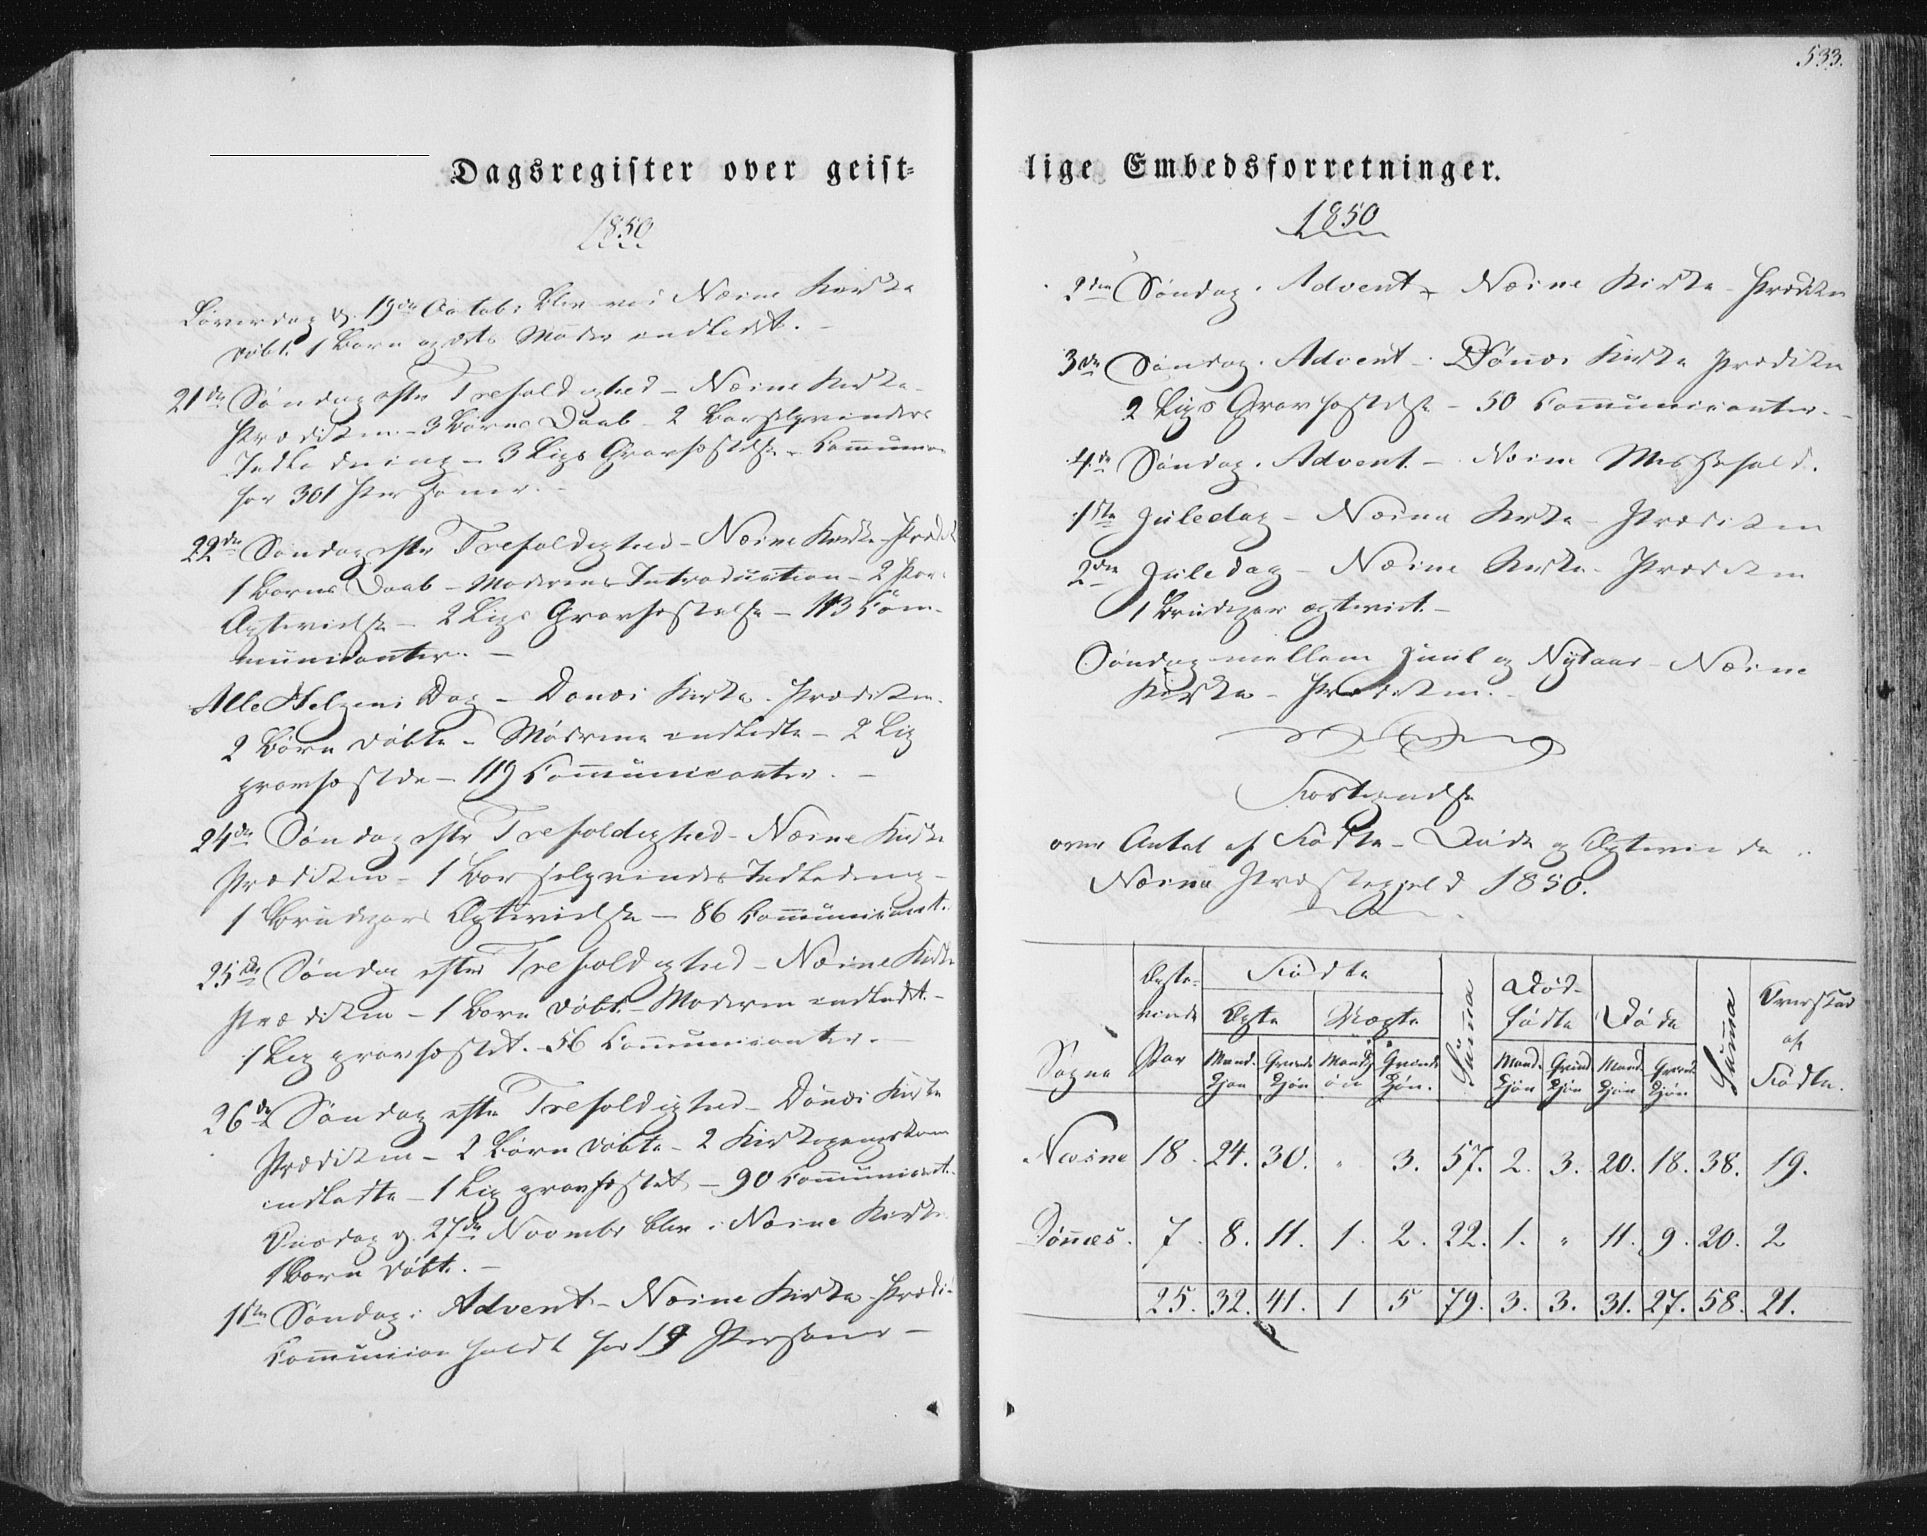 533.
Dagsregister over geist-
1850
Løverdag d. 19de Octob: blev ved Næsne Kirke
døbt 1 Barn og dets Moder indledet. –
21de Søndag efter Trefoldighed – Næsne Kirke –
Prædiken – 3 Børns Daab – 2 Barselqvinders
Indledning – 3 Ligs Gravfæstelse – Communion
for 301 Personer. –
22de Søndag efter Trefoldighed – Næsne Kirke – Præd
1 Barns Daab – Moderens Introduction – 2 Par
Ægtevielse – 2 Ligs Gravfæstelse – 113 Com-
municanter. –
Alle Helgens Dag – Dønæs Kirke – Prædiken.
2 Børn døbte – Mødrene indledte – 2 Lig
gravfæstede – 119 Communicanter. –
24de Søndag efter Trefoldighed – Næsne Kirke
Prædiken – 1 Barselqvindes Indledning –
1 Brudepars Ægtevielse – 86 Communicant.
25de Søndag efter Trefoldighed – Næsne Kirke
Prædiken – 1 Barn døbt – Moderen indledet. –
1 Lig gravfæstet. – 56 Communicanter. –
26de Søndag efter Trefoldighed – Dønæs Kirke
Prædiken – 2 Børn døbte – 2 Kirkegangskoner
indledte – 1 Lig gravfæstet – 90 Communicant.
Onsdag d. 27de Novembr blev i Næsne Kirke
1 Barn døbt. –
1ste Søndag i Advent – Næsne Kirke – Prædi-
Communion holdt for 19 Personer –
lige Embedsforretninger.
1850
2den Søndag i Advent – Næsne Kirke – Prædiken
3de Søndag i Advent – Dønæs Kirke Prædiken
2 Ligs Gravfæstelse – 50 Communicanter. –
4de Søndag i Advent – Næsne Messefald.
1ste Juledag – Næsne Kirke – Prædiken
2den Juledag – Næsne Kirke – Prædiken
1 Brudepar ægteviet. –
Søndag mellem Juul og Nytaar – Næsne
Kirke – Prædiken. –
Fortegnelse
over Antal af Fødte – Døde og Ægteviede i
Næsne Præstegjeld 1850.
Sogne Ægte- viede Par Fødte Ægte Uægte Mand. Kjøn Qvinde Kjøn Mandkj øn Qvinde Kjøn. Summa Død- fødte Mand. Kjøn Qvind Kjøn Døde Mand. Kjøn Qvind. Kjøn Summa Overskud af Fødte.
Næsne 18. 24. 30. " 3. 57. 2. 3. 20. 18. 38. 19.
Dønnæs. 7. 8. 11. 1. 2. 22. 1. " 11. 9. 20. 2
25. 32. 41. 1 5 79. 3. 3. 31. 27. 58. 21.